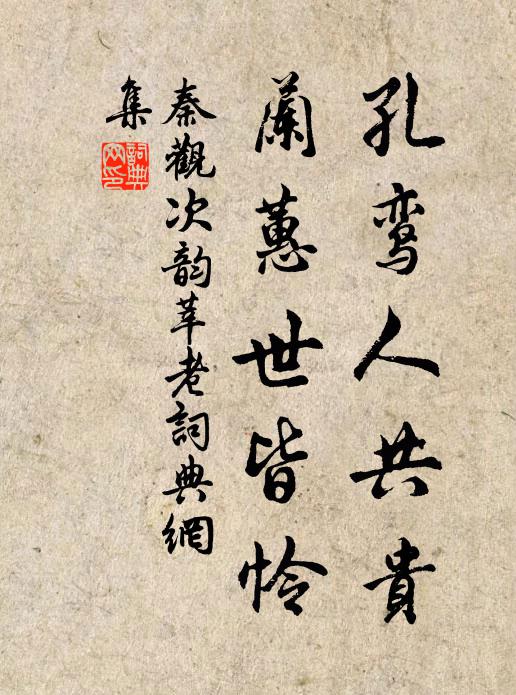 孔鸾人共貴
蘭蕙世皆怜
秦觀次韵莘老詞典網
集
詞典
网印